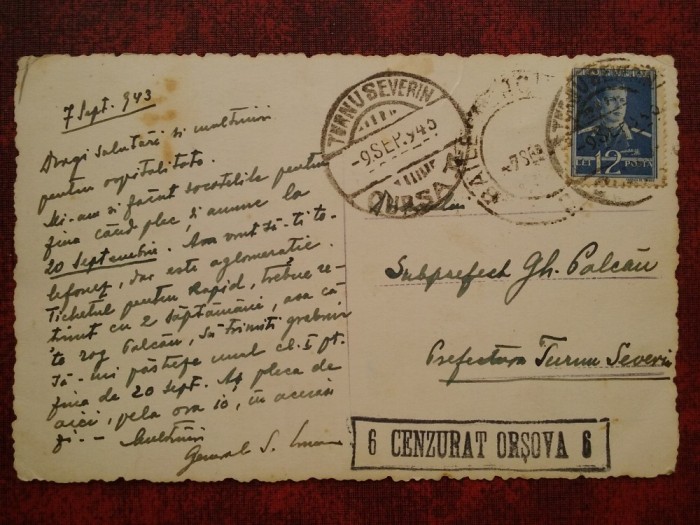 7 Sept. 943
Dragi salutări și mulțumiri
pentru ospitalitate.
Mi-am și făcut socotelile pentru
ziua când plec, și anume la
20 Septembrie. Am vrut să-ți te-
lefonez, dar este aglomerație.
Tichetul pentru Rapid, trebue re-
ținut cu 2 săptămâni, așa că
te rog Palcău, să trimiți grabnic
să-mi păstreze unul cl. I pt.
ziua de 20 Sept. Aș pleca de
aici, pela ora 10, în aceeași
zi. — Mulțumiri
General S.
Subprefect Gh. Palcău
Prefectura Turnu Severin
TURNU SEVERIN
-9 SEP. 943
CURSA
-7 SEP
12
LEI
POSTA
6 CENZURAT ORȘOVA 6